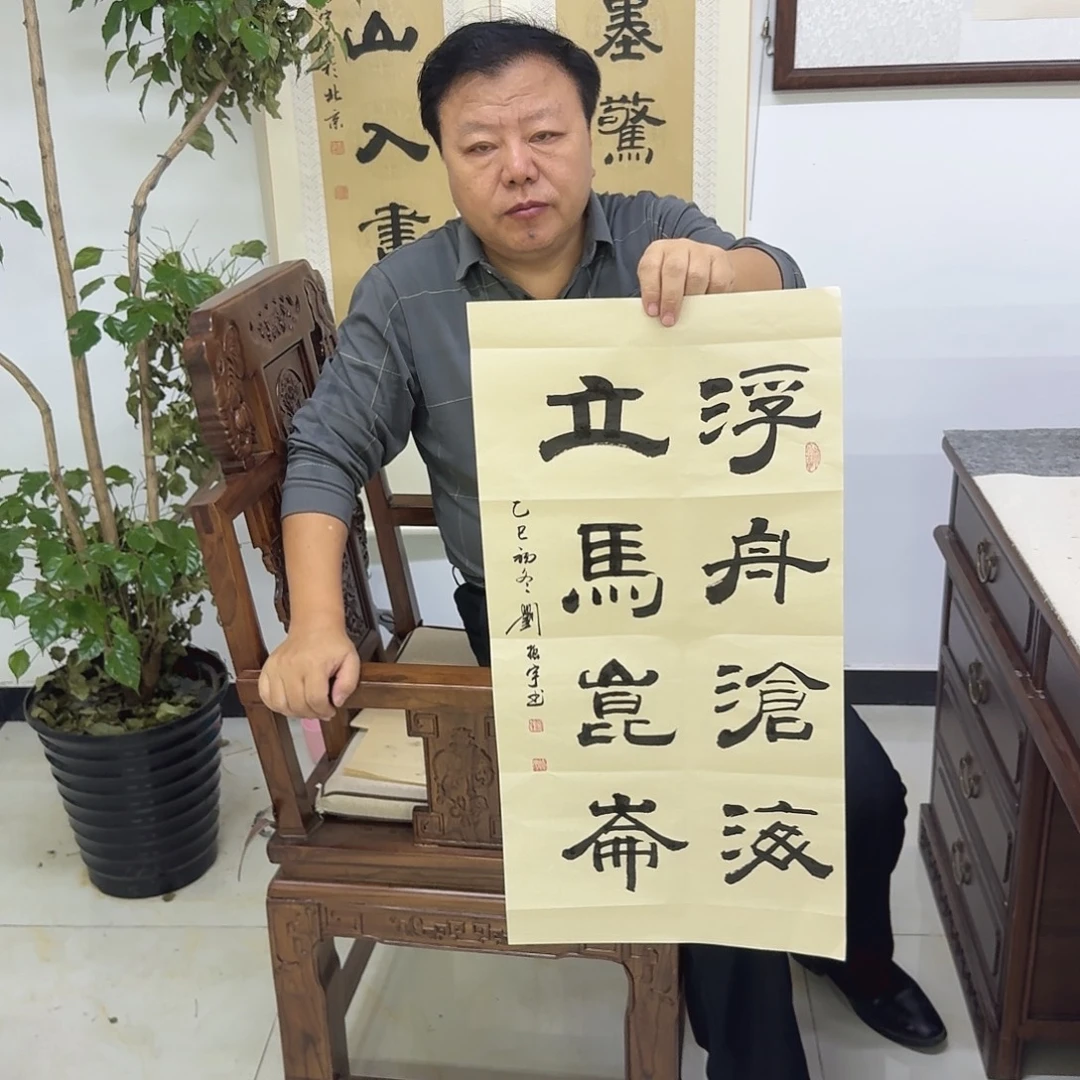 浮舟滄海
立馬崑崙
乙巳初冬劉振宇书
墨驚
山入畫
於北京